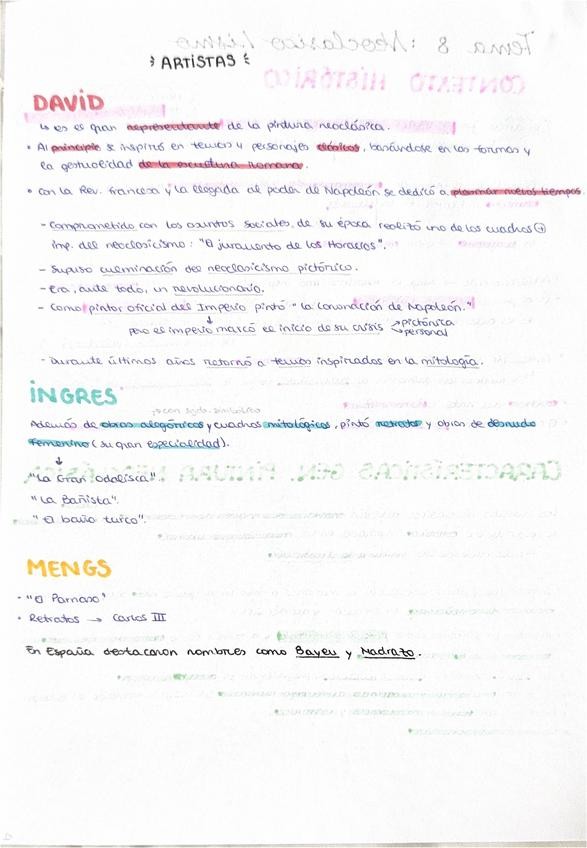 ARTISTAS
DAVID
↳ es el gran representante de la pintura neoclásica.
• Al principio se inspiró en temas y personajes clásicos, basándose en las formas y
la gestualidad de la escultura romana.
• con la Rev. francesa y la llegada al poder de Napoleón se dedicó a plasmar nuevos tiempos
- Comprometido con los asuntos sociales de su época realizó uno de los cuadros ⊕
imp. del neoclasicismo: "El juramento de los Horacios".
- Supuso culminación del neoclasicismo pictórico.
- Era, ante todo, un revolucionario.
- Como pintor oficial del Imperio pintó "La Coronación de Napoleón."
↓
pero el imperio marcó el inicio de su crisis → pictórica
→ personal
- Durante últimos años retornó a temas inspirados en la mitología.
INGRES
→ con sgdo. simbólico
Además de obras alegóricas y cuadros mitológicos, pintó retratos y obras de desnudo
femenino (su gran especialidad).
↓
"La Gran Odalisca"
"La Bañista".
"El baño turco".
MENGS
· "El Parnaso"
· Retratos → Carlos III
En España destacaron nombres como Bayeu y Madrazo.